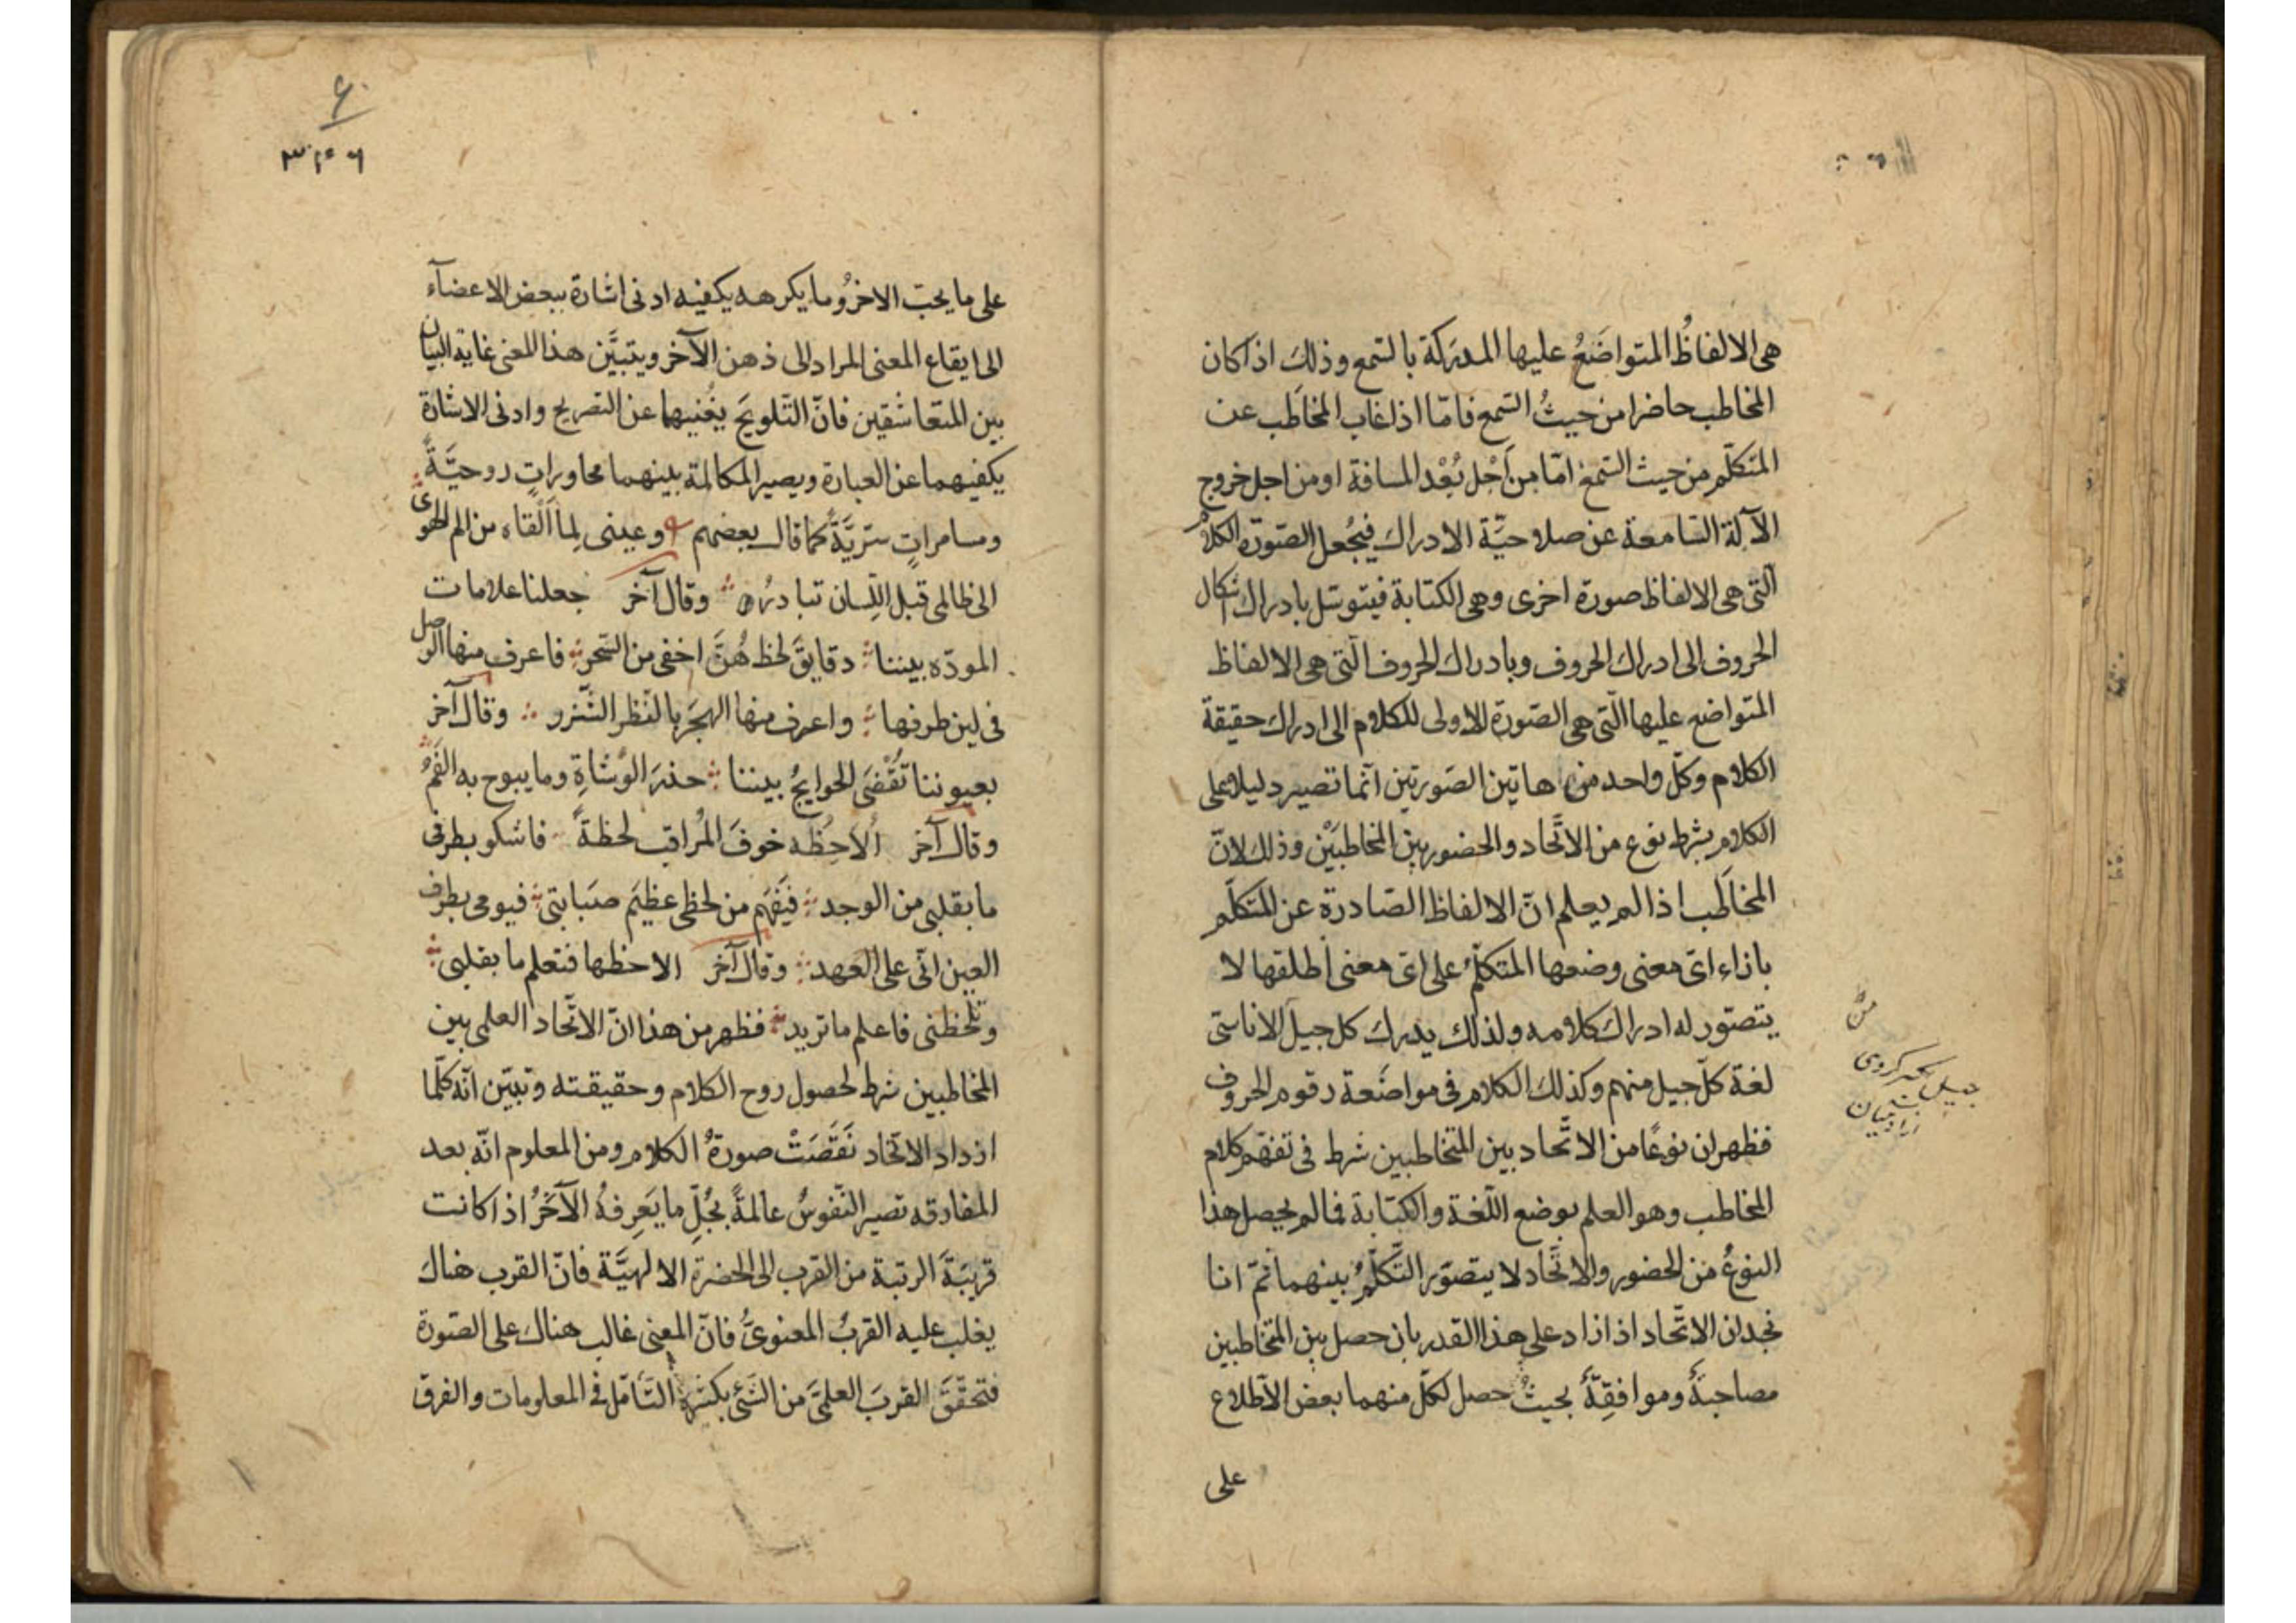 هي الالفاظُ المتواضَعُ عليها المدرَكة بالسّمع وذلك اذا كان
المخاطب حاضرا من حيثُ السّمع فامّا اذا غاب المخاطَب عن
المتكلّم من حيث السّمع امّا من اَجْل بُعْد المسافة او من اجل خروج
الآلة السّامعة عن صلاحيّة الادراك فيُجعل لصّورة الكلام
الّتي هي الالفاظ صورة اخرى وهي الكتابة فيتوسّل بادراك اشكال
الحروف الى ادراك الحروف وبادراك الحروف الّتي هي الالفاظ
المتواضع عليها الّتي هي الصّورة الاولى للكلام الى ادراك حقيقة
الكلام وكلّ واحد من هاتين الصّورتين انّما تصير دليلا على
الكلام بشرط نوع من الاتّحاد والحضور بين المخاطبَيْن وذلك لانّ
المخاطَب اذا لم يعلم انّ الالفاظ الصّادرة عن المتكلّم
بازاء ايّ معنى وضعها المتكلّمُ على ايّ معنى اطلقها لا
يتصوّر له ادراك كلامه ولذلك يدرك كل جيل الاناسيّ
لغة كلّ جيل منهم وكذلك الكلام في مواضَعة رقوم الحروف
فظهر ان نوعًا من الاتّحاد بين المتخاطبين شرط في تفهّم كلام
المخاطب وهو العلم بوضع اللّغة والكتابة فما لم يحصل هذا
النوعُ من الحضور والاتّحاد لا يتصوّر التّكلّمُ بينهما ثمّ انا
نجد ان الاتّحاد اذا زاد على هذا القدر بان حصل بين المتخاطبين
مصاحبةٌ وموافقةٌ بحيثُ حصل لكلّ منهما بعض الاطّلاع
على
على ما يحبّ الاخرُ وما يكرهه يكفيه ادنى اشارة ببعض الاعضآء
الى ايقاع المعنى المراد الى ذهن الآخر ويتبيَّن هذا المعنى غاية البيان
بين المتعاشقين فانّ التّلويحَ يُغنيهما عن التصريح وادنى الاشارة
يكفيهما عن العبارة ويصير المكالمة بينهما محاوراتٍ روحيَّةً
ومسامراتٍ سرّيَّةً كما قال بعضهم وعيني لِما اَلْقاه من الم الهوى
الى ظالمي قبل اللّسان تبادرُه وقال آخر جعلنا علامات
المودّه بيننا دقايقَ لحظ هُنَّ اخفى من السّحر فاعرف منها الوصل
في لين طرفها واعرف منها الهجرَ بالنّظر الشّزر وقال آخر
بعيوننا تُقْضَى الحوايجُ بيننا حذرَ الوُشاةِ وما يبوح به الفَمُ
وقال آخر اُلاحِظُه خوفَ المُراقب لحظةً فاشكو بطرفي
ما بقلبي من الوجد فيَفْهَم من لحظي عظيمَ صَبابتي فيومي بطرف
العين انّي على العَهد وقال آخر الاحظها فتعلم ما بقلبي
وتلحظني فاعلم ما تريد فظهر من هذا انّ الاتّحاد العلمي بين
المخاطبين شرط لحصول روح الكلام وحقيقته وتبيّن انّه كلّما
ازداد الاتّحاد نَقَصَتْ صورةُ الكلام ومن المعلوم انّه بعد
المفارقه تصير النّفوسُ عالمةً بجُلِّ ما يَعرِفهُ الآخَرُ اذا كانت
قريبَةَ الرتبة من القرب الى الحضرة الالهيَّة فانّ القرب هناك
يغلب عليه القربُ المعنويُّ فانّ المعنى غالب هناك على الصّورة
فتحقّقَ القربَ العلميَّ من الشّئ بكثرة التّأمّل في المعلومات والفرق